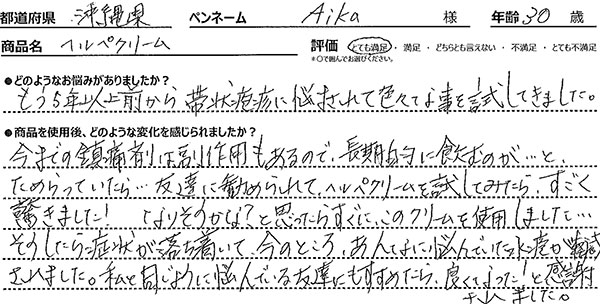 都道府県 沖縄県 ペンネーム Aika 様 年齢 30 歳
商品名 ヘルペクリーム 評価 とても満足・満足・どちらとも言えない・不満足・とても不満足
*○で囲んでお選びください。
●どのようなお悩みがありましたか?
もう5年以上前から帯状疱疹に悩まされて色々な事を試してきました。
●商品を使用後、どのような変化を感じられましたか?
今までの鎮痛剤は副作用もあるので、長期的に飲むのが…と、
ためらっていたら…友達に勧められて、ヘルペクリームを試してみたら、すごく
驚きました! なりそうかな?と思ったらすぐに、このクリームを使用しました…
そうしたら症状が落ち着いて、今のところ、あんなに悩んでいた水疱が激減
されました。私と同じように悩んでいる友達にもすすめたら、良くなった!と感謝
されました。